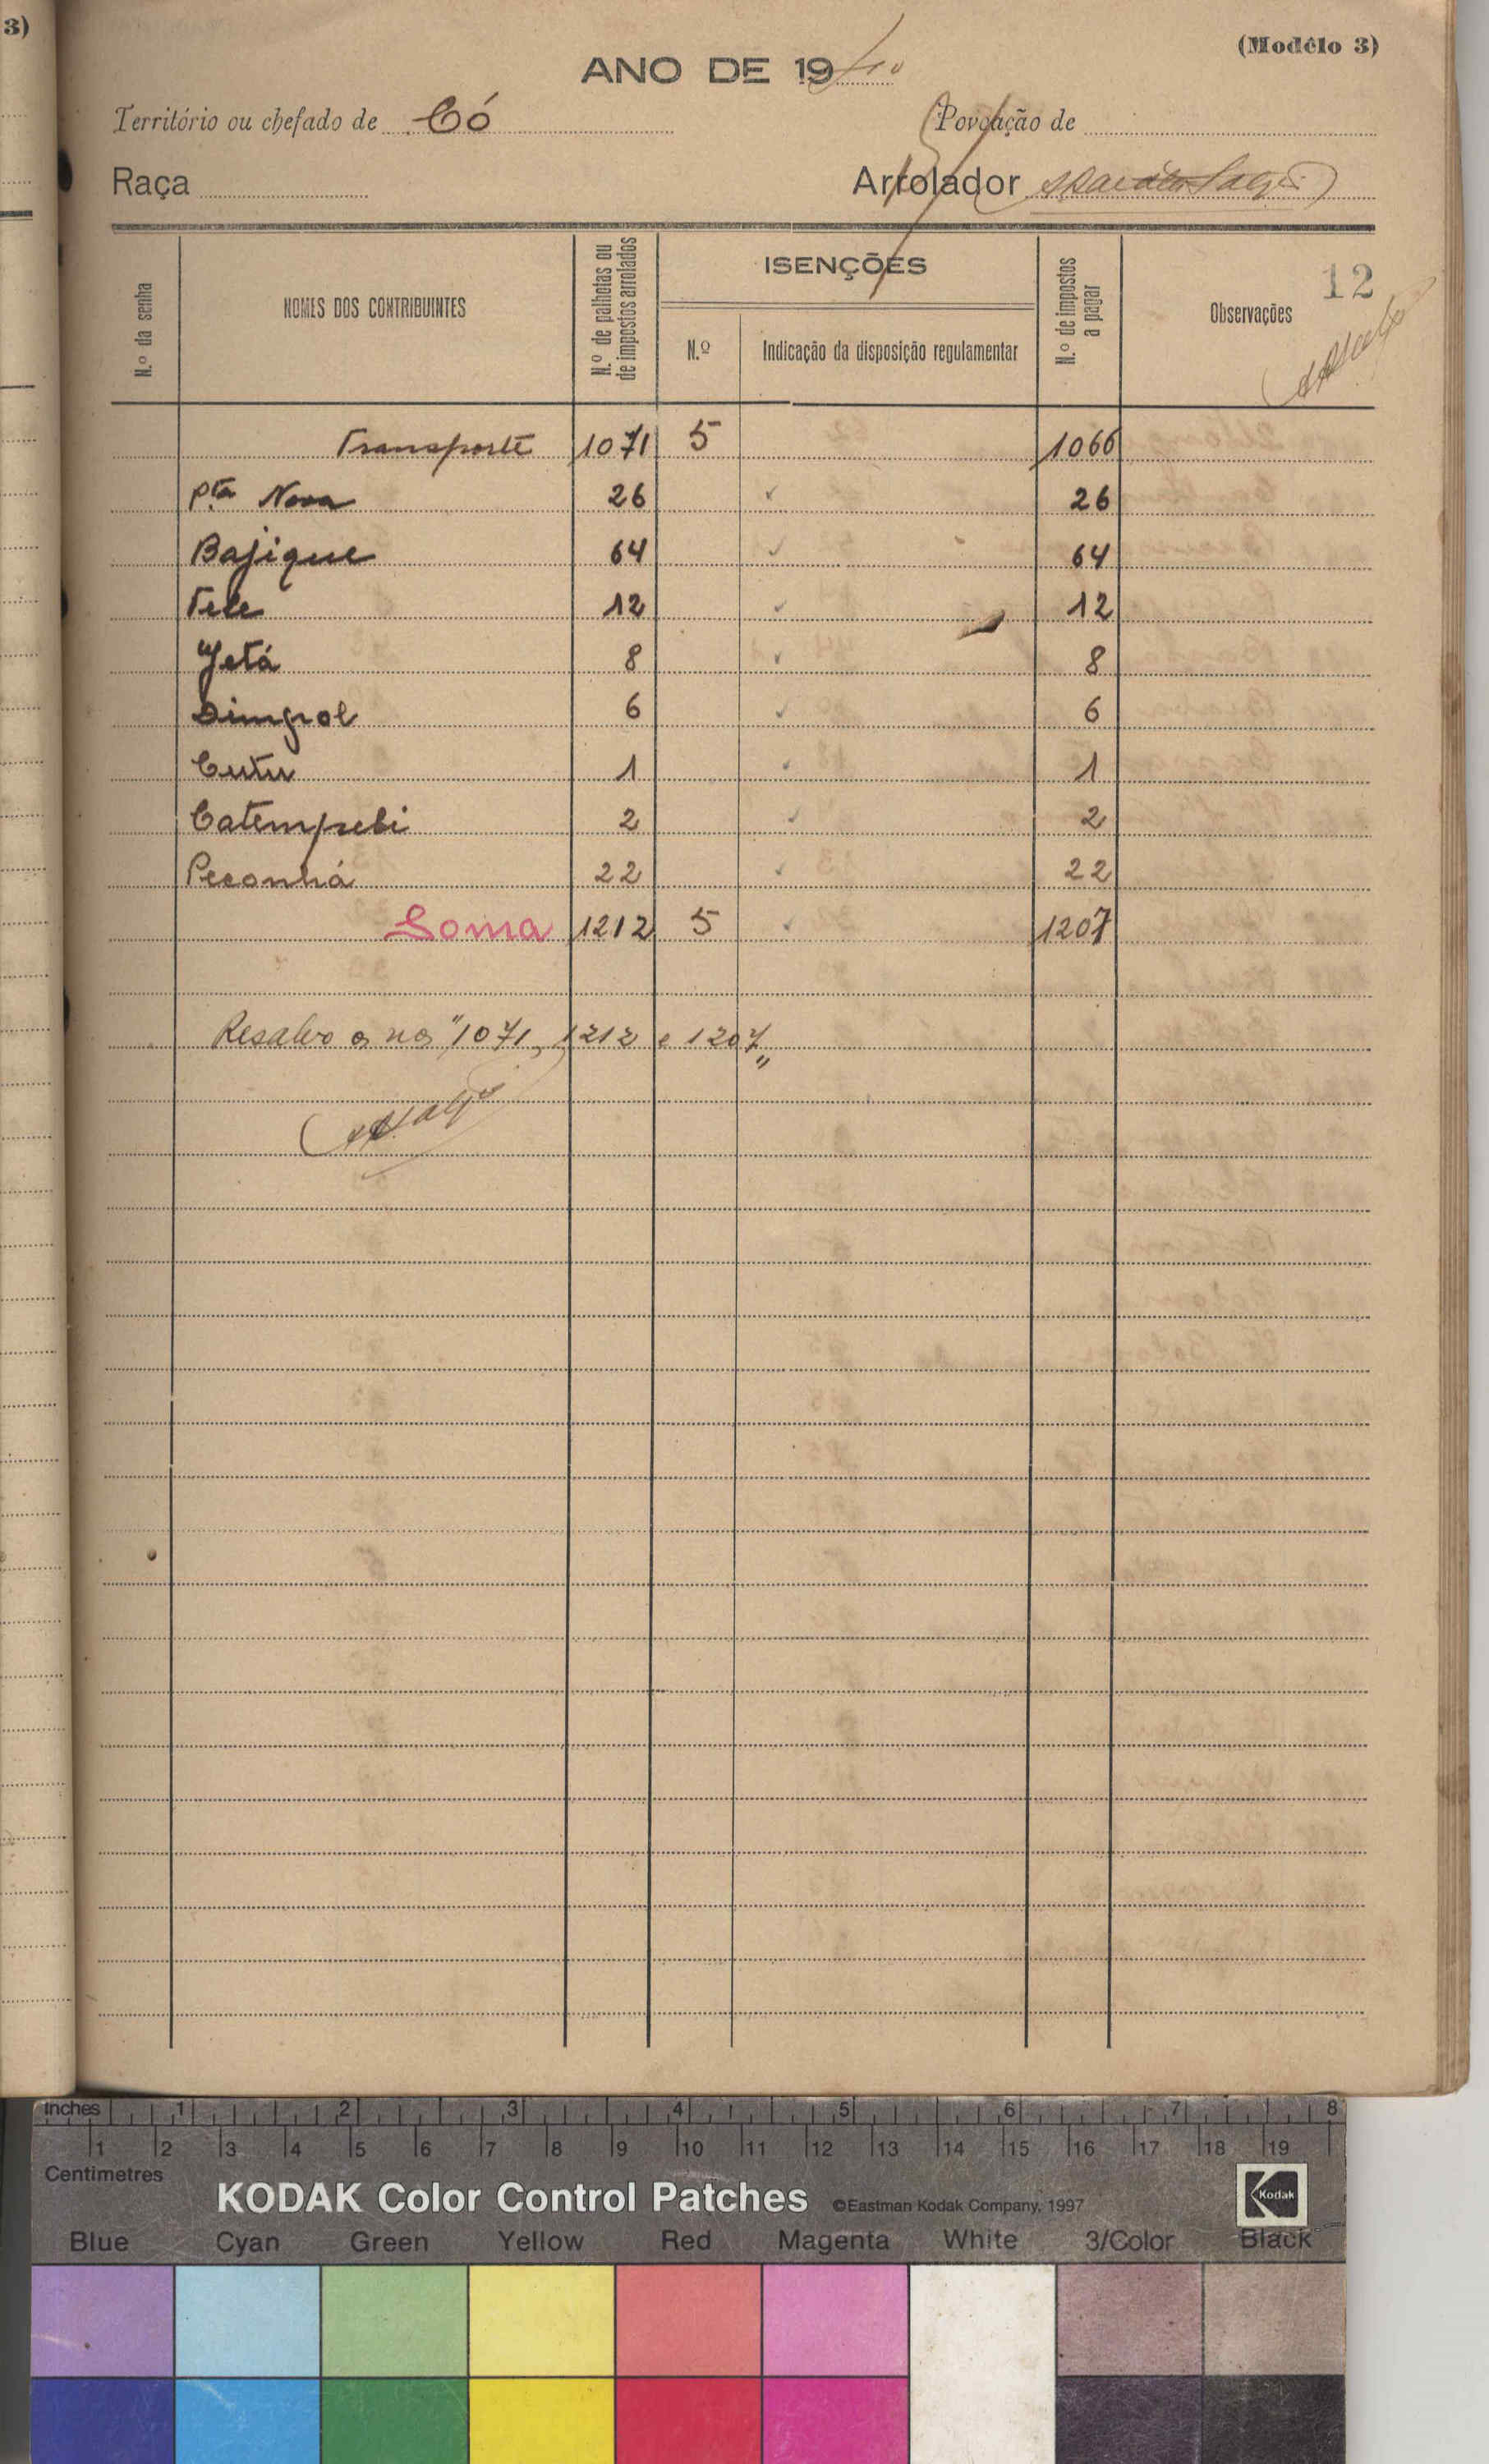 3)
(Modêlo 3)
ANO DE 1940
Território ou chefado de Có
Povoação de
Raça
Arrolador
N.º da senha
NOMES DOS CONTRIBUINTES
N.º de palhotas ou de impostos arrolados
ISENÇÕES
N.º
Indicação da disposição regulamentar
N.º de impostos a pagar
Observações
12
Transporte 1071 5 1066
Pta Nova 26 26
Bajique 64 64
Tele 12 12
Jetá 8 8
6 6
Cutu 1 1
2 2
Peconhá 22 22
Soma 1212 5 1207
Resalvo os nos "1071, 1212 e 1207"
Inches 1 2 3 4 5 6 7 8
1 2 3 4 5 6 7 8 9 10 11 12 13 14 15 16 17 18 19
Centimetres
KODAK Color Control Patches ©Eastman Kodak Company, 1997 Kodak
Blue Cyan Green Yellow Red Magenta White 3/Color Black